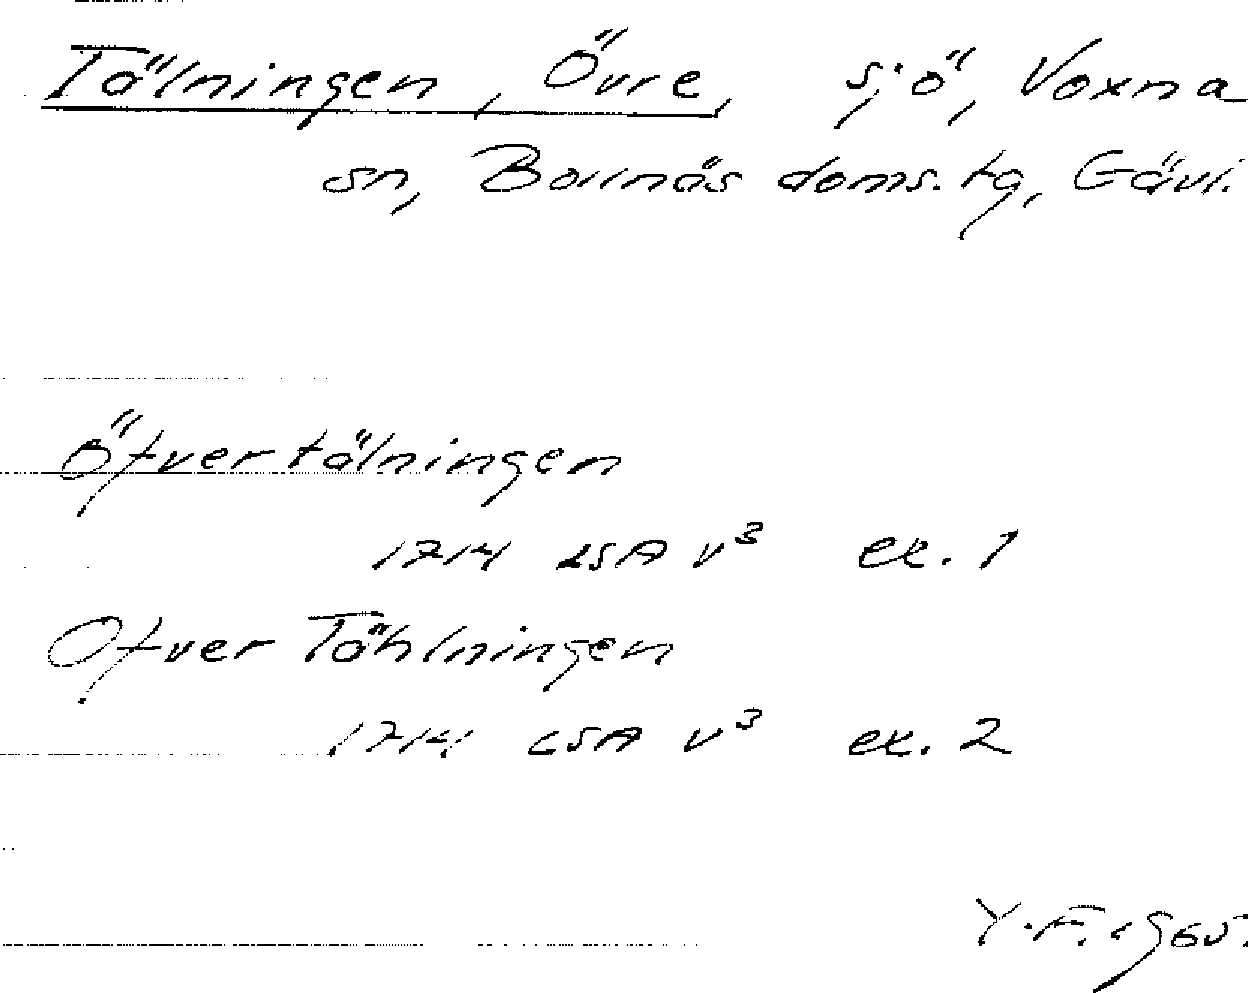 Tälningen, Övre, sjö, Voxna
sn, Bollnäs doms. tg, Gävl.
Öfvertälningen
1714 LSA V³ ex. 1
Ofver Tählningen
1714 LSA V³ ex. 2
Y.F. 1965.